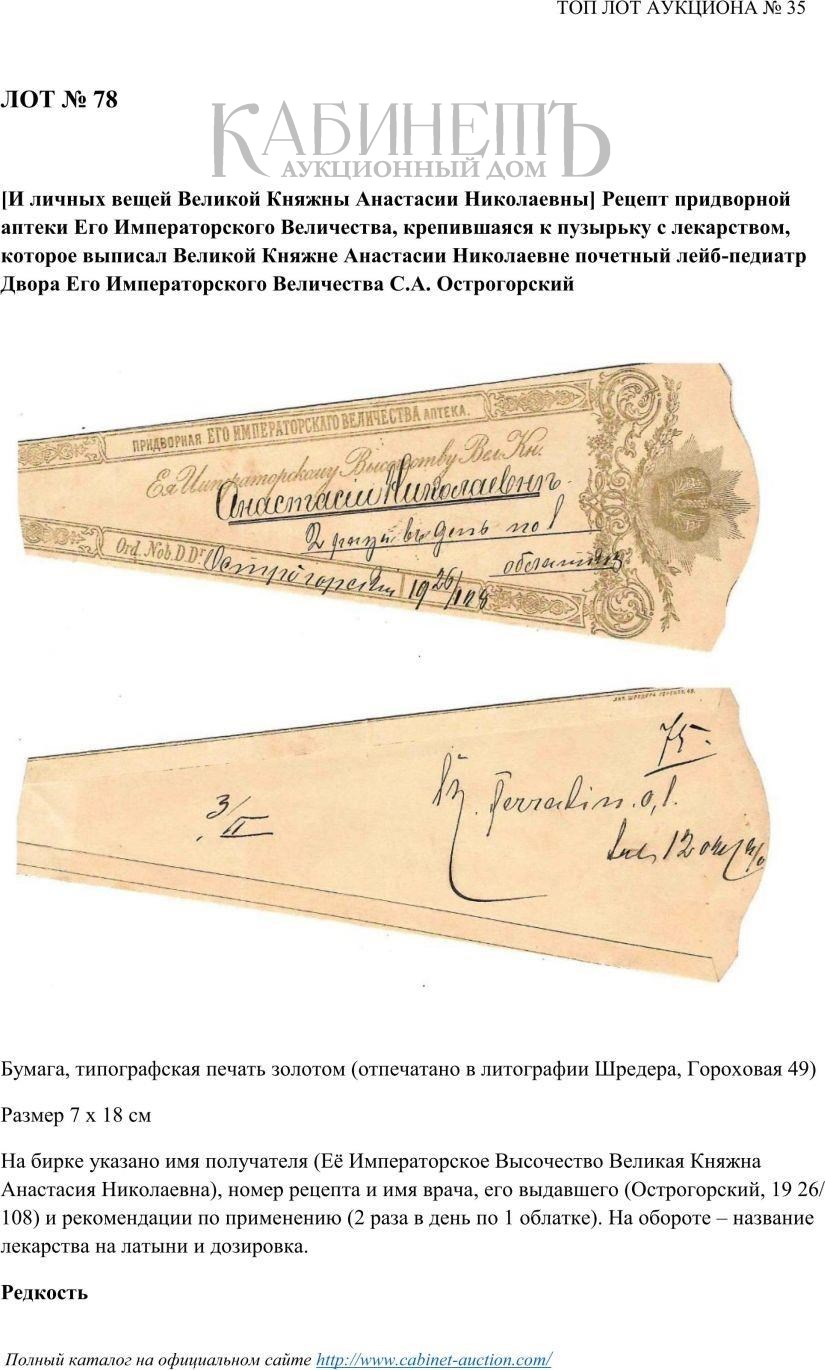 ТОП ЛОТ АУКЦИОНА № 35
ЛОТ № 78
КАБИНЕТЪ
АУКЦИОННЫЙ ДОМ
[И личных вещей Великой Княжны Анастасии Николаевны] Рецепт придворной
аптеки Его Императорского Величества, крепившаяся к пузырьку с лекарством,
которое выписал Великой Княжне Анастасии Николаевне почетный лейб-педиатр
Двора Его Императорского Величества С.А. Острогорский
ПРИДВОРНАЯ ЕГО ИМПЕРАТОРСКАГО ВЕЛИЧЕСТВА АПТЕКА.
Ея Императорскому Высочеству Вел. Кн.
Анастасіи Николаевнѣ.
2 раза въ день по 1
Ord. Nob. D. Dr Острогорскій 19 26/
3/II
75.-
Ferratin. 0,1.
12
Бумага, типографская печать золотом (отпечатано в литографии Шредера, Гороховая 49)
Размер 7 x 18 см
На бирке указано имя получателя (Её Императорское Высочество Великая Княжна
Анастасия Николаевна), номер рецепта и имя врача, его выдавшего (Острогорский, 19 26/
108) и рекомендации по применению (2 раза в день по 1 облатке). На обороте – название
лекарства на латыни и дозировка.
Редкость
Полный каталог на официальном сайте http://www.cabinet-auction.com/